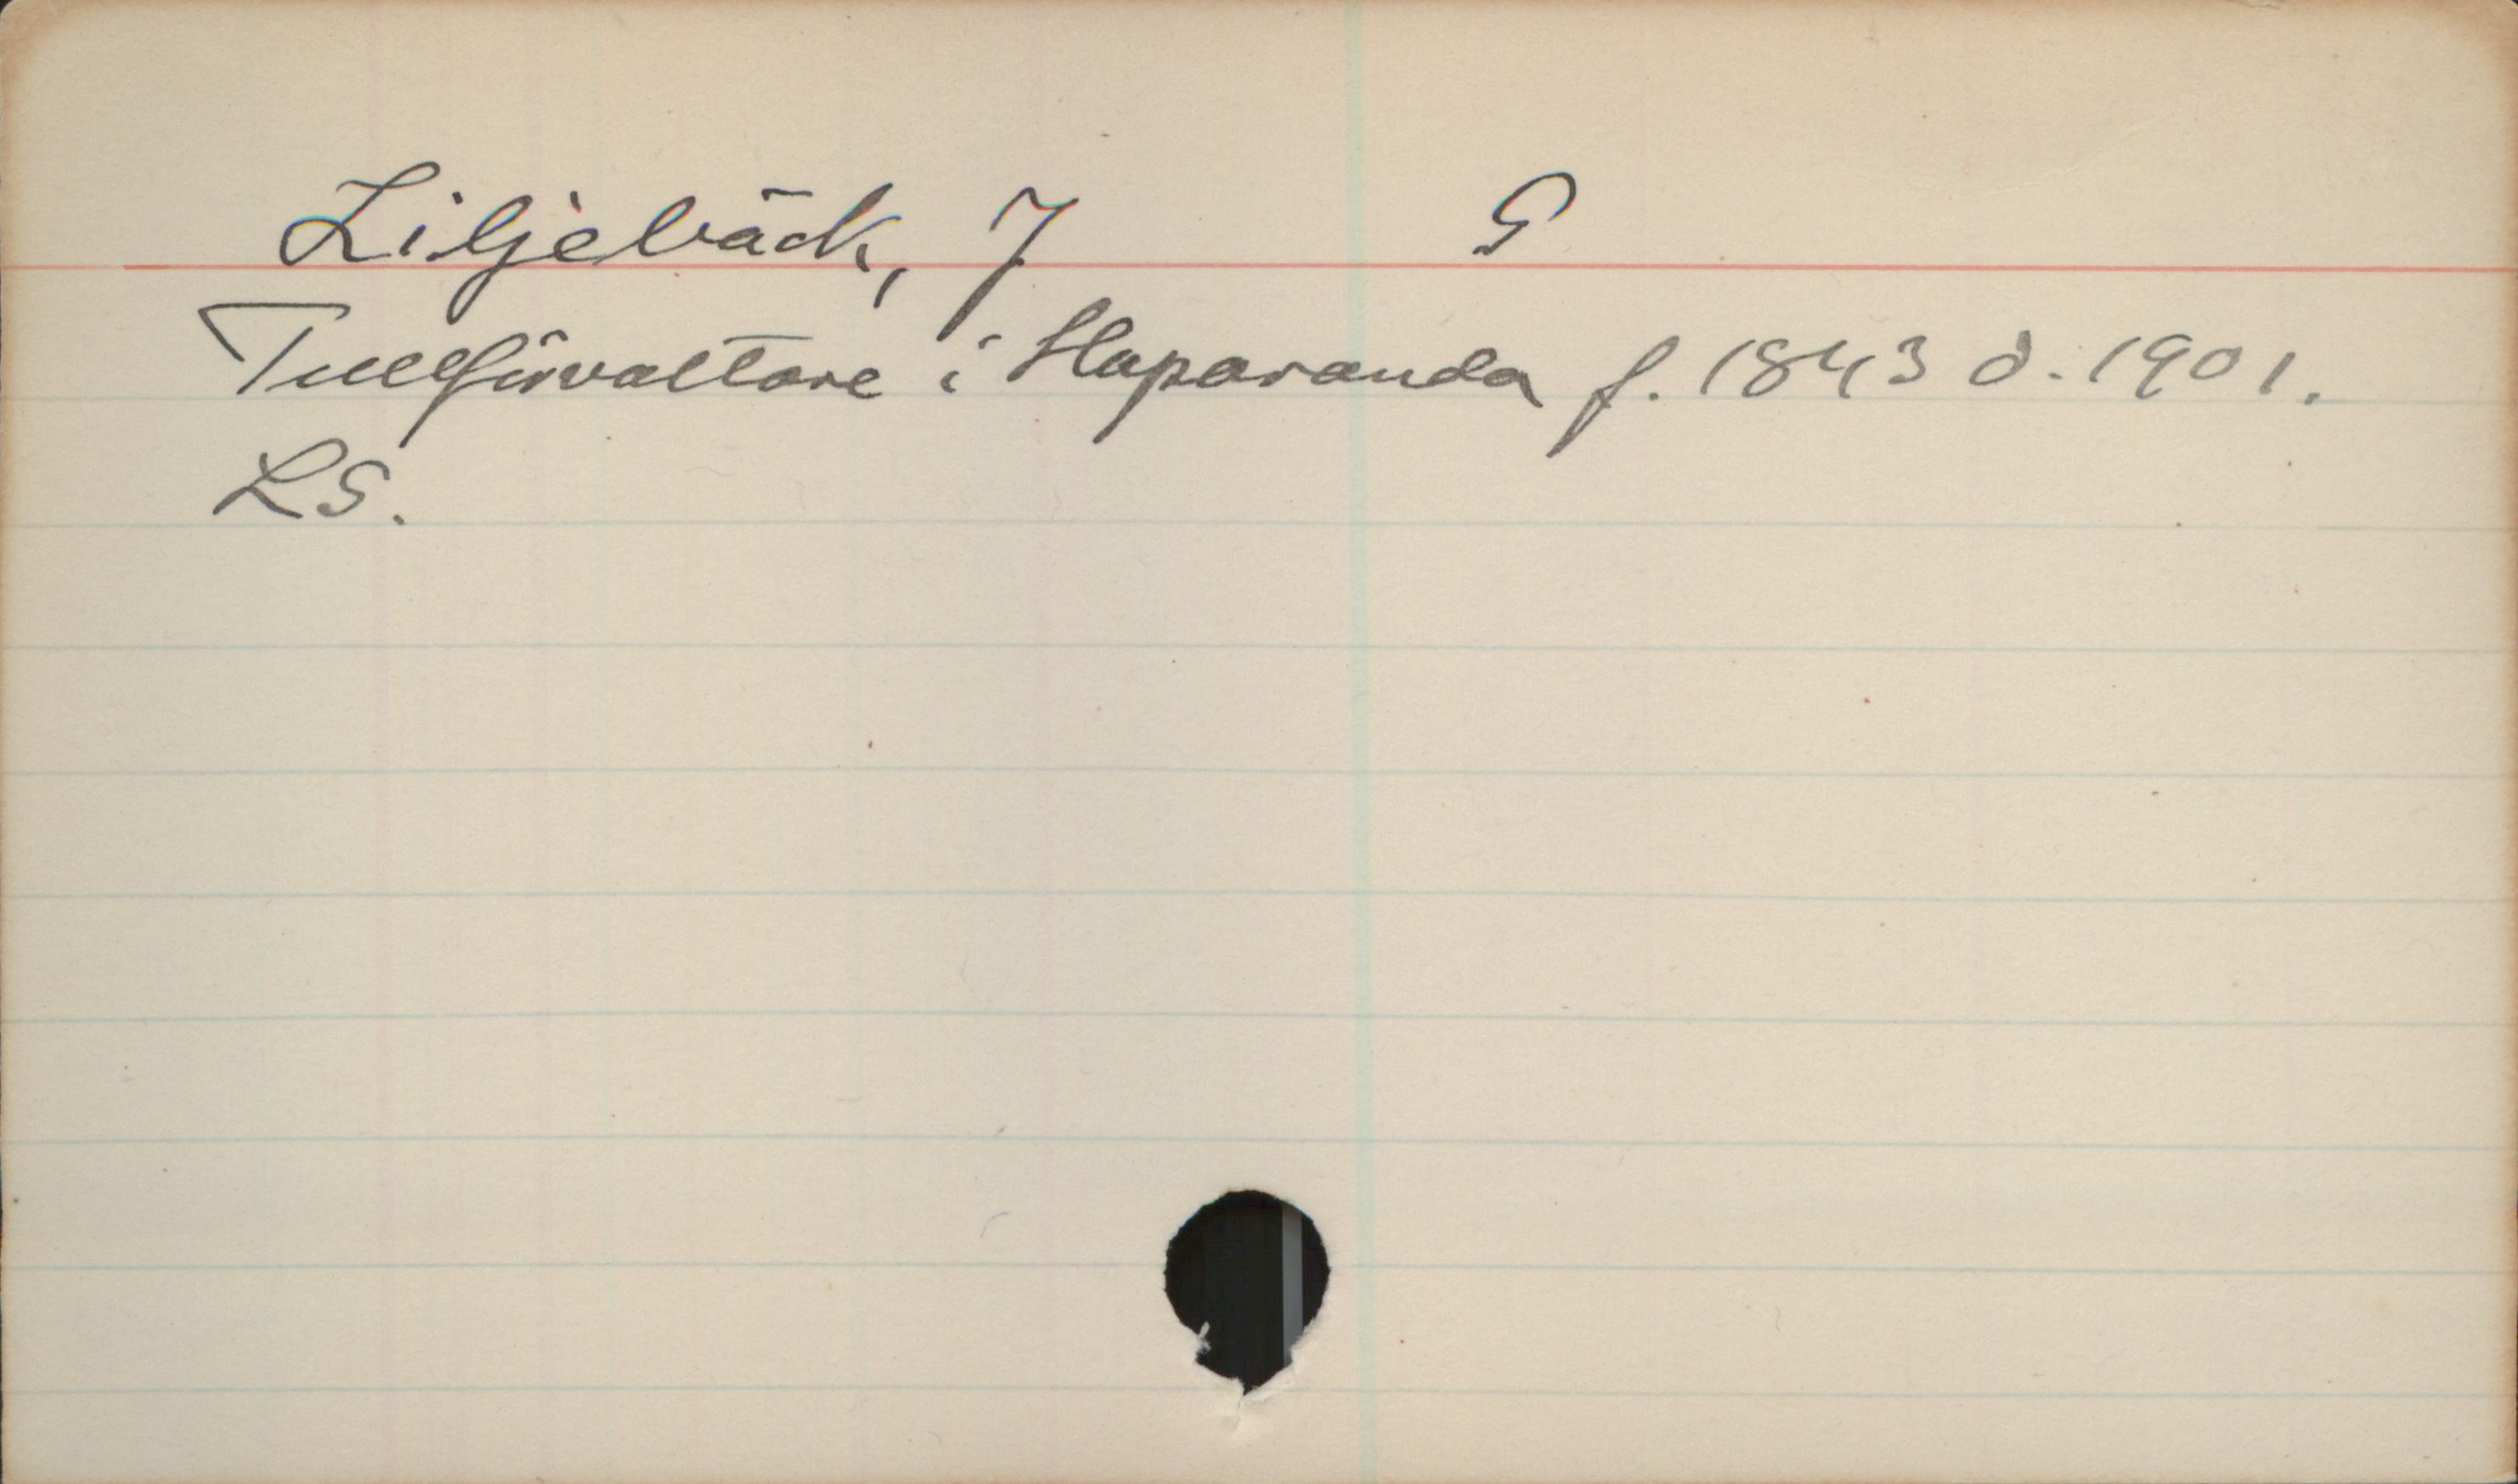 Liljebäck, J G
Tullförvaltare i Haparanda f. 1843 d. 1901.
LS.